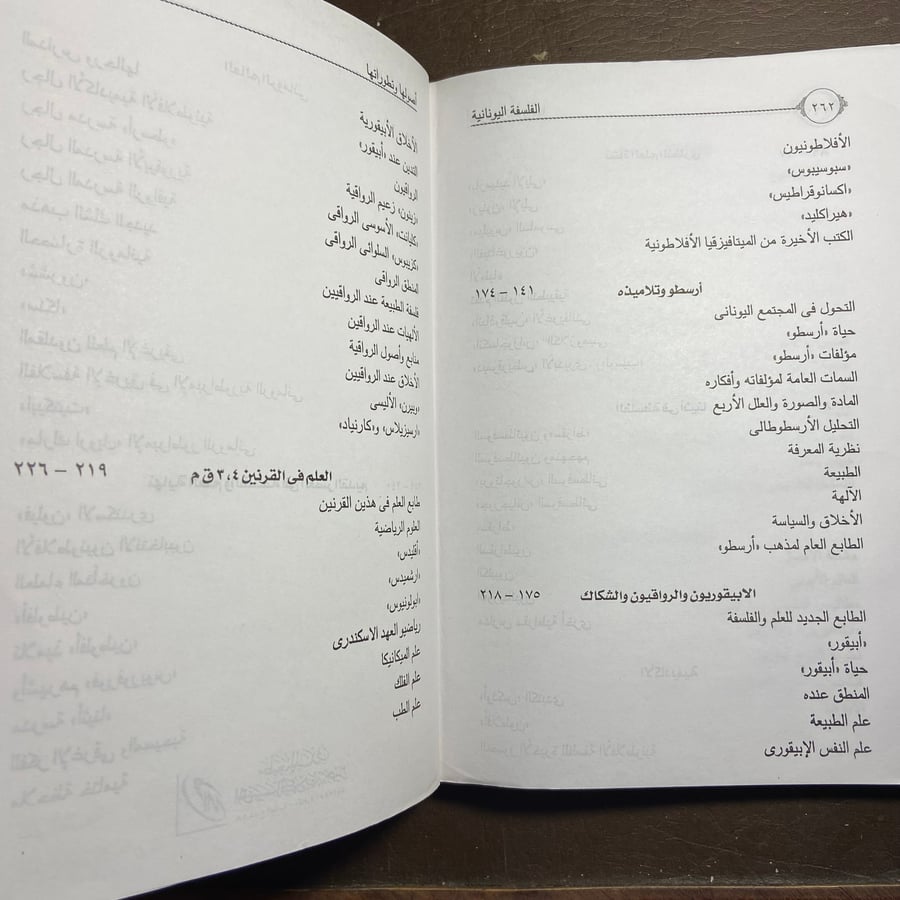 ٢٦٢
الفلسفة اليونانية
الأفلاطونيون
«سبوسيبوس»
«اكسانوقراطيس»
«هيراكليد»
الكتب الأخيرة من الميتافيزقيا الأفلاطونية
أرسطو وتلاميذه ١٤١ – ١٧٤
التحول فى المجتمع اليونانى
حياة «أرسطو»
مؤلفات «أرسطو»
السمات العامة لمؤلفاته وأفكاره
المادة والصورة والعلل الأربع
التحليل الأرسطوطالى
نظرية المعرفة
الطبيعة
الآلهة
الأخلاق والسياسة
الطابع العام لمذهب «أرسطو»
الابيقوريون والرواقيون والشكاك ١٧٥ – ٢١٨
الطابع الجديد للعلم والفلسفة
«أبيقور»
حياة «أبيقور»
المنطق عنده
علم الطبيعة
علم النفس الإبيقورى
أصولها وتطوراتها
الأخلاق الأبيقورية
التدين عند «أبيقور»
الرواقيون
«زينون» زعيم الرواقية
«كليانت» الأسوسى الرواقى
«كزيبوس» السلوائى الرواقى
المنطق الرواقى
فلسفة الطبيعة عند الرواقيين
الألهيات عند الرواقين
منابع وأصول الرواقية
الأخلاق عند الرواقيين
«وبيرن» الأليسى
«أرسيزيلاس» و«كارنياد»
العلم فى القرنين ٣،٤ ق م ٢١٩ – ٢٢٦
طابع العلم فى هذين القرنين
العلوم الرياضية
«أقيدس»
«ارشميدس»
«ابولونيوس»
رياضيو العهد الاسكندرى
علم الميكانيكا
علم الفلك
علم الطب